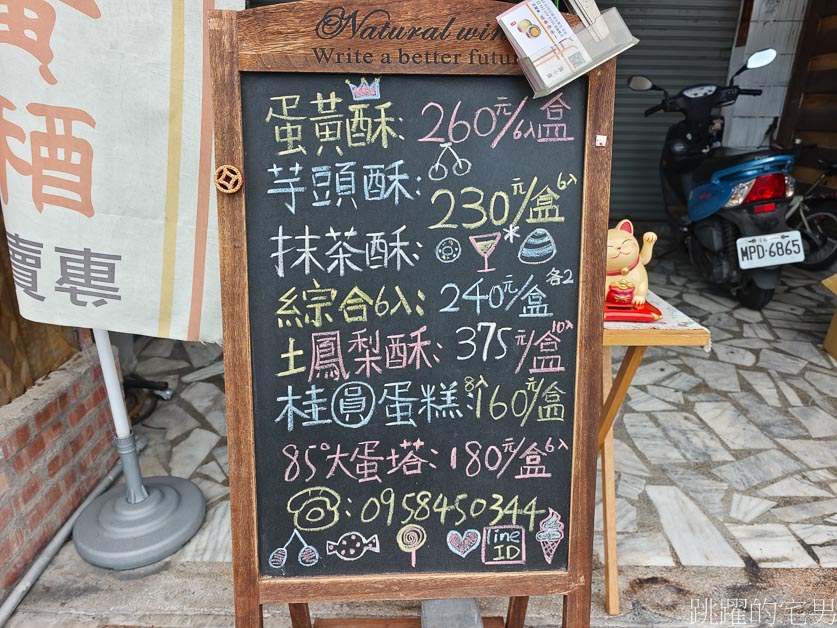 Natural win
Write a better futu
蛋黃酥:260元/6入盒
芋頭酥:230元/盒6入
抹茶酥:
綜合6入:240元/盒各2
土鳳梨酥:375元/盒10入
桂圓蛋糕:8入160元/盒
85°大蛋塔:180元/盒6入
:0958450344
line
ID
酒
賣專
MPD-6865
跳躍的宅男